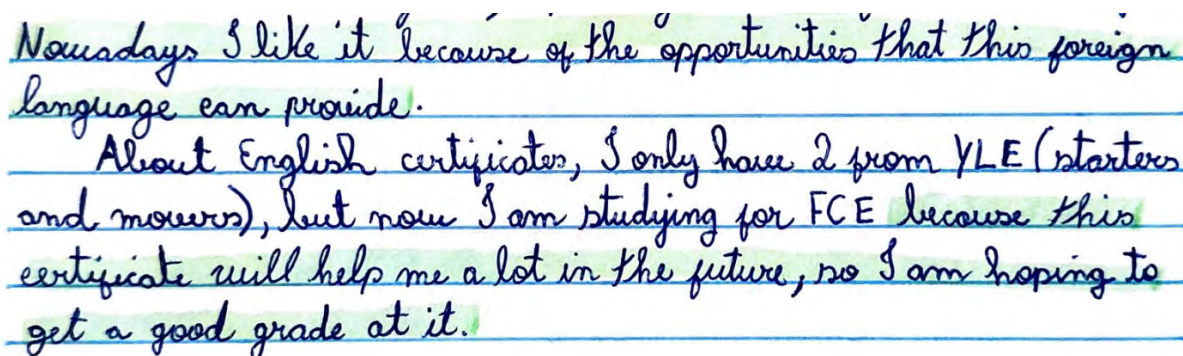 Nowadays I like it because of the opportunities that this foreign
language can provide.
About English certificates, I only have 2 from YLE (starters
and movers), but now I am studying for FCE because this
certificate will help me a lot in the future, so I am hoping to
get a good grade at it.